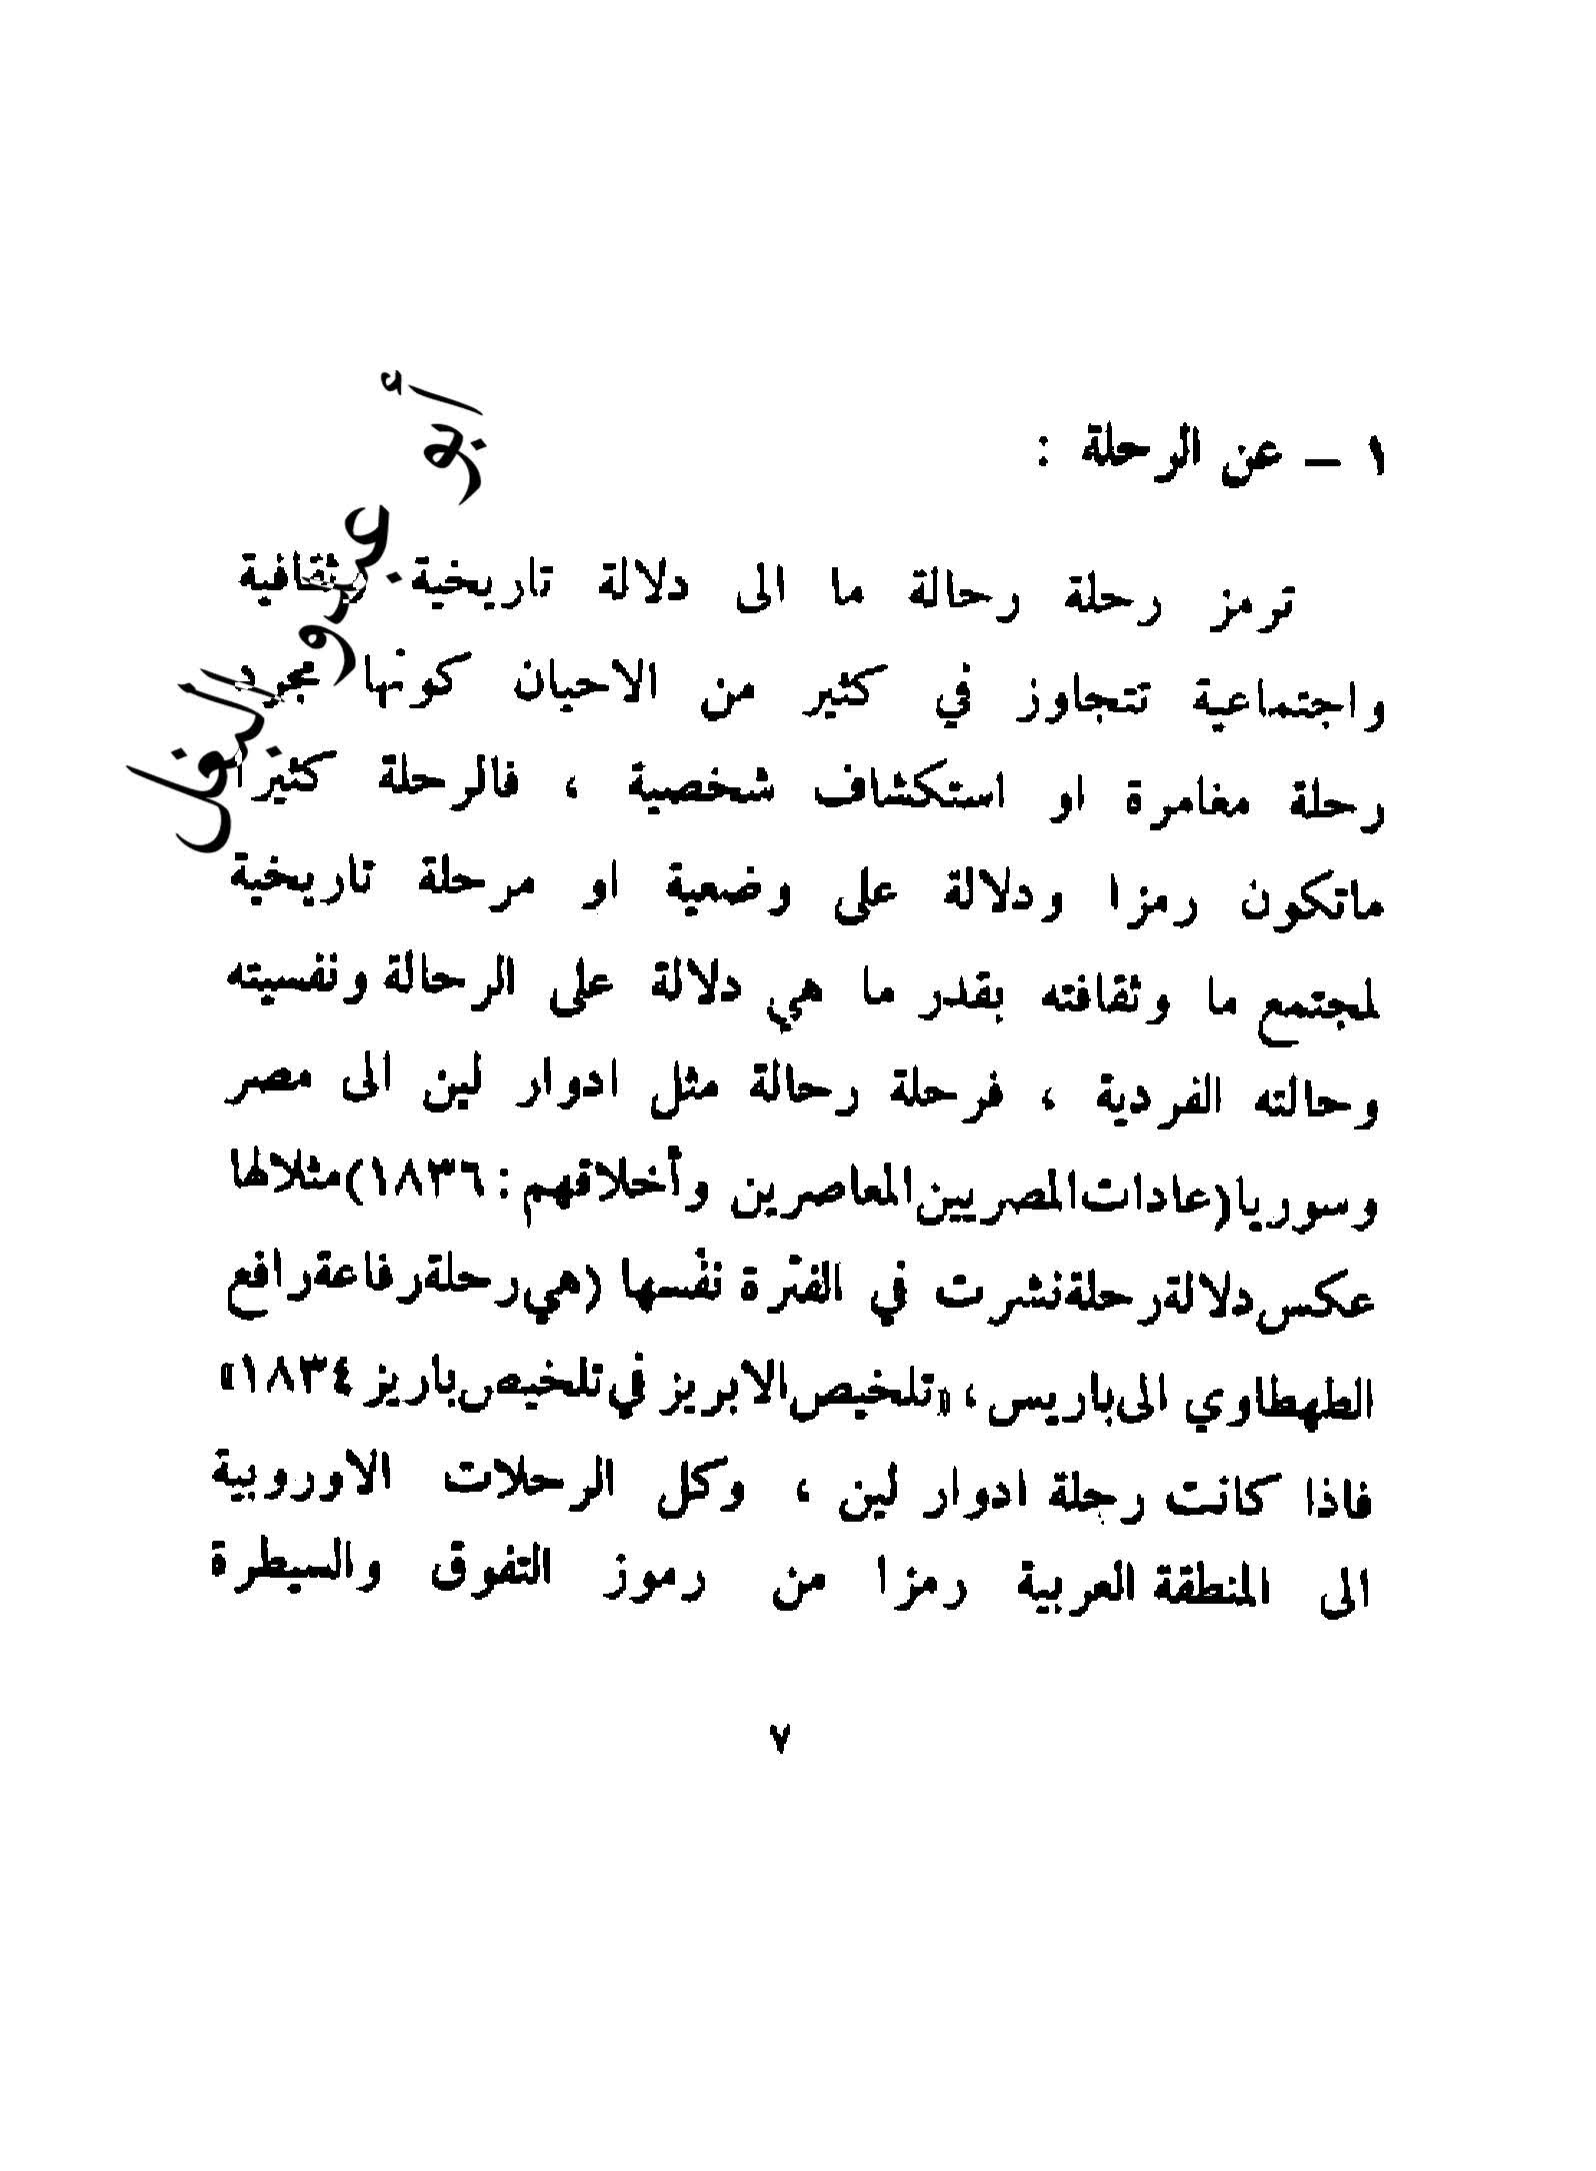 ١ – عن الرحلة :
ترمز رحلة رحالة ما الى دلالة تاريخية وثقافية
واجتماعية تتجاوز في كثير من الاحيان كونها مجرد
رحلة مغامرة او استكشاف شخصية ، فالرحلة كثيرا
ماتكون رمزا ودلالة على وضعية او مرحلة تاريخية
لمجتمع ما وثقافته بقدر ما هي دلالة على الرحالة ونفسيته
وحالته الفردية ، فرحلة رحالة مثل ادوار لين الى مصر
وسوريا (عادات المصريين المعاصرين وأخلاقهم : ١٨٣٦) مثلا لها
عكس دلالة رحلة نشرت في الفترة نفسها (هي رحلة رفاعة رافع
الطهطاوي الى باريس ، «تلخيص الابريز في تلخيص باريز ١٨٣٤»
فاذا كانت رحلة ادوار لين ، وكل الرحلات الاوروبية
الى المنطقة العربية رمزا من رموز التفوق والسيطرة
٧
أبو عبدو البغل